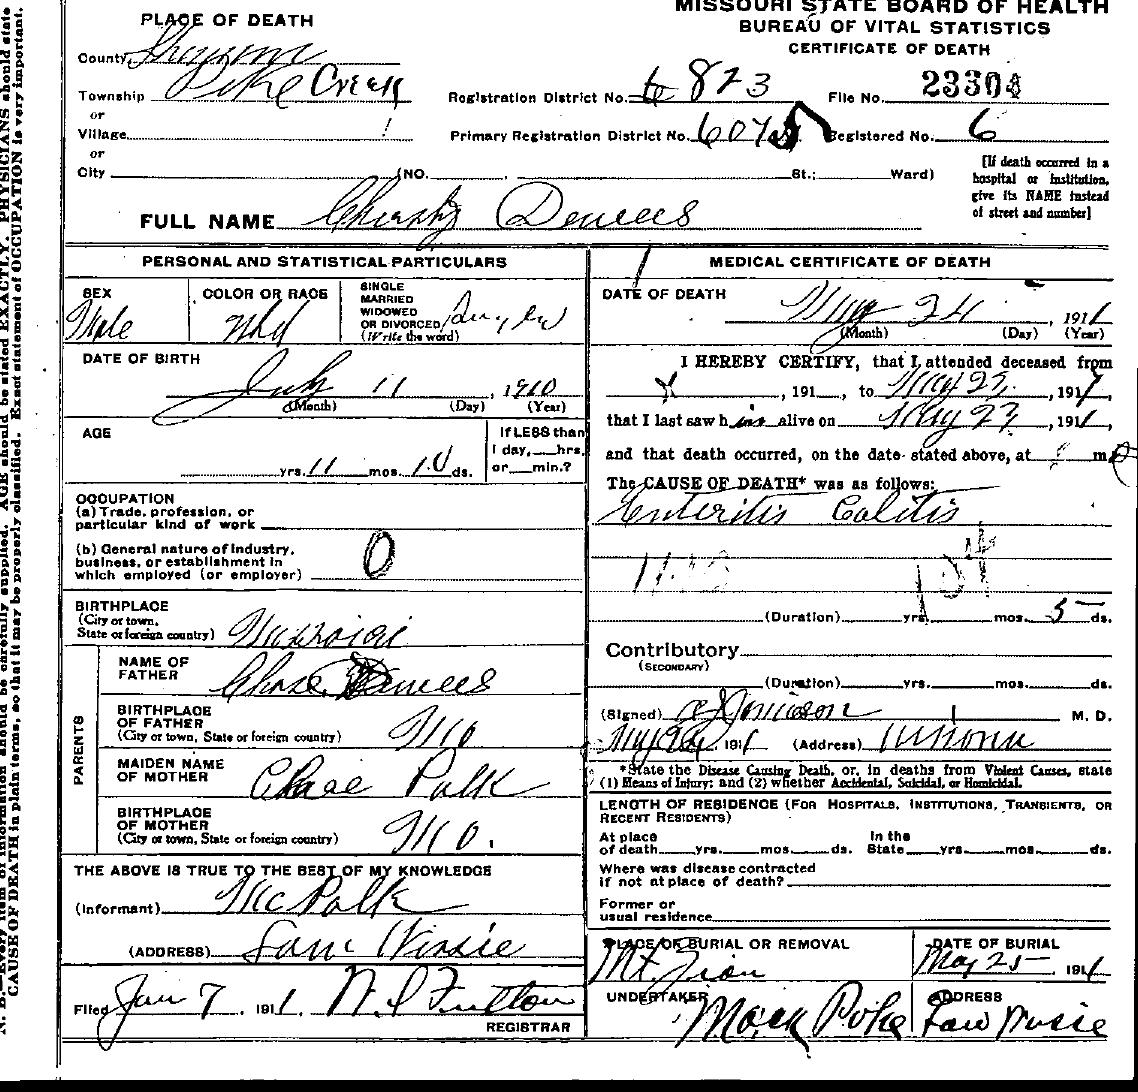 MISSOURI STATE BOARD OF HEALTH
BUREAU OF VITAL STATISTICS
CERTIFICATE OF DEATH
PLACE OF DEATH
County
Township Pike Creek
or
Village
or
City (NO. , St.; Ward)
Registration District No. 823 File No. 23304
Primary Registration District No. 6075 Registered No. 6
[If death occurred in a hospital or institution, give its NAME instead of street and number]
FULL NAME
PERSONAL AND STATISTICAL PARTICULARS
SEX Male
COLOR OR RACE
SINGLE MARRIED WIDOWED OR DIVORCED (Write the word)
DATE OF BIRTH
July 11 , 1910
(Month) (Day) (Year)
AGE
yrs. 11 mos. 10 ds.
If LESS than 1 day, hrs. or min.?
OCCUPATION
(a) Trade, profession, or
particular kind of work
(b) General nature of industry,
business, or establishment in
which employed (or employer) 0
BIRTHPLACE
(City or town,
State or foreign country)
PARENTS
NAME OF
FATHER
BIRTHPLACE
OF FATHER
(City or town, State or foreign country) Mo
MAIDEN NAME
OF MOTHER Polk
BIRTHPLACE
OF MOTHER
(City or town, State or foreign country) Mo.
THE ABOVE IS TRUE TO THE BEST OF MY KNOWLEDGE
(Informant) Mc Polk
(ADDRESS)
Filed Jan 7 , 1911. Fulton
REGISTRAR
MEDICAL CERTIFICATE OF DEATH
DATE OF DEATH
May 24 , 1911
(Month) (Day) (Year)
I HEREBY CERTIFY, that I attended deceased from
, 191 , to May 23, 191
that I last saw him alive on May 23 , 1911,
and that death occurred, on the date stated above, at m.
The CAUSE OF DEATH* was as follows:
Enteritis Colitis
104
(Duration) yrs. mos. 5 ds.
Contributory
(SECONDARY)
(Duration) yrs. mos. ds.
(Signed) M. D.
May 1911 (Address)
*State the Disease Causing Death, or, in deaths from Violent Causes, state
(1) Means of Injury; and (2) whether Accidental, Suicidal, or Homicidal.
LENGTH OF RESIDENCE (FOR HOSPITALS, INSTITUTIONS, TRANSIENTS, OR
RECENT RESIDENTS)
At place of death yrs. mos. ds. In the State yrs. mos. ds.
Where was disease contracted
if not at place of death?
Former or
usual residence
PLACE OF BURIAL OR REMOVAL
Mt. Zion
DATE OF BURIAL
May 25 , 1911
UNDERTAKER
Mack
ADDRESS
N. B.—Every item of information should be carefully supplied. AGE should be stated EXACTLY. PHYSICIANS should state
CAUSE OF DEATH in plain terms, so that it may be properly classified. Exact statement of OCCUPATION is very important.